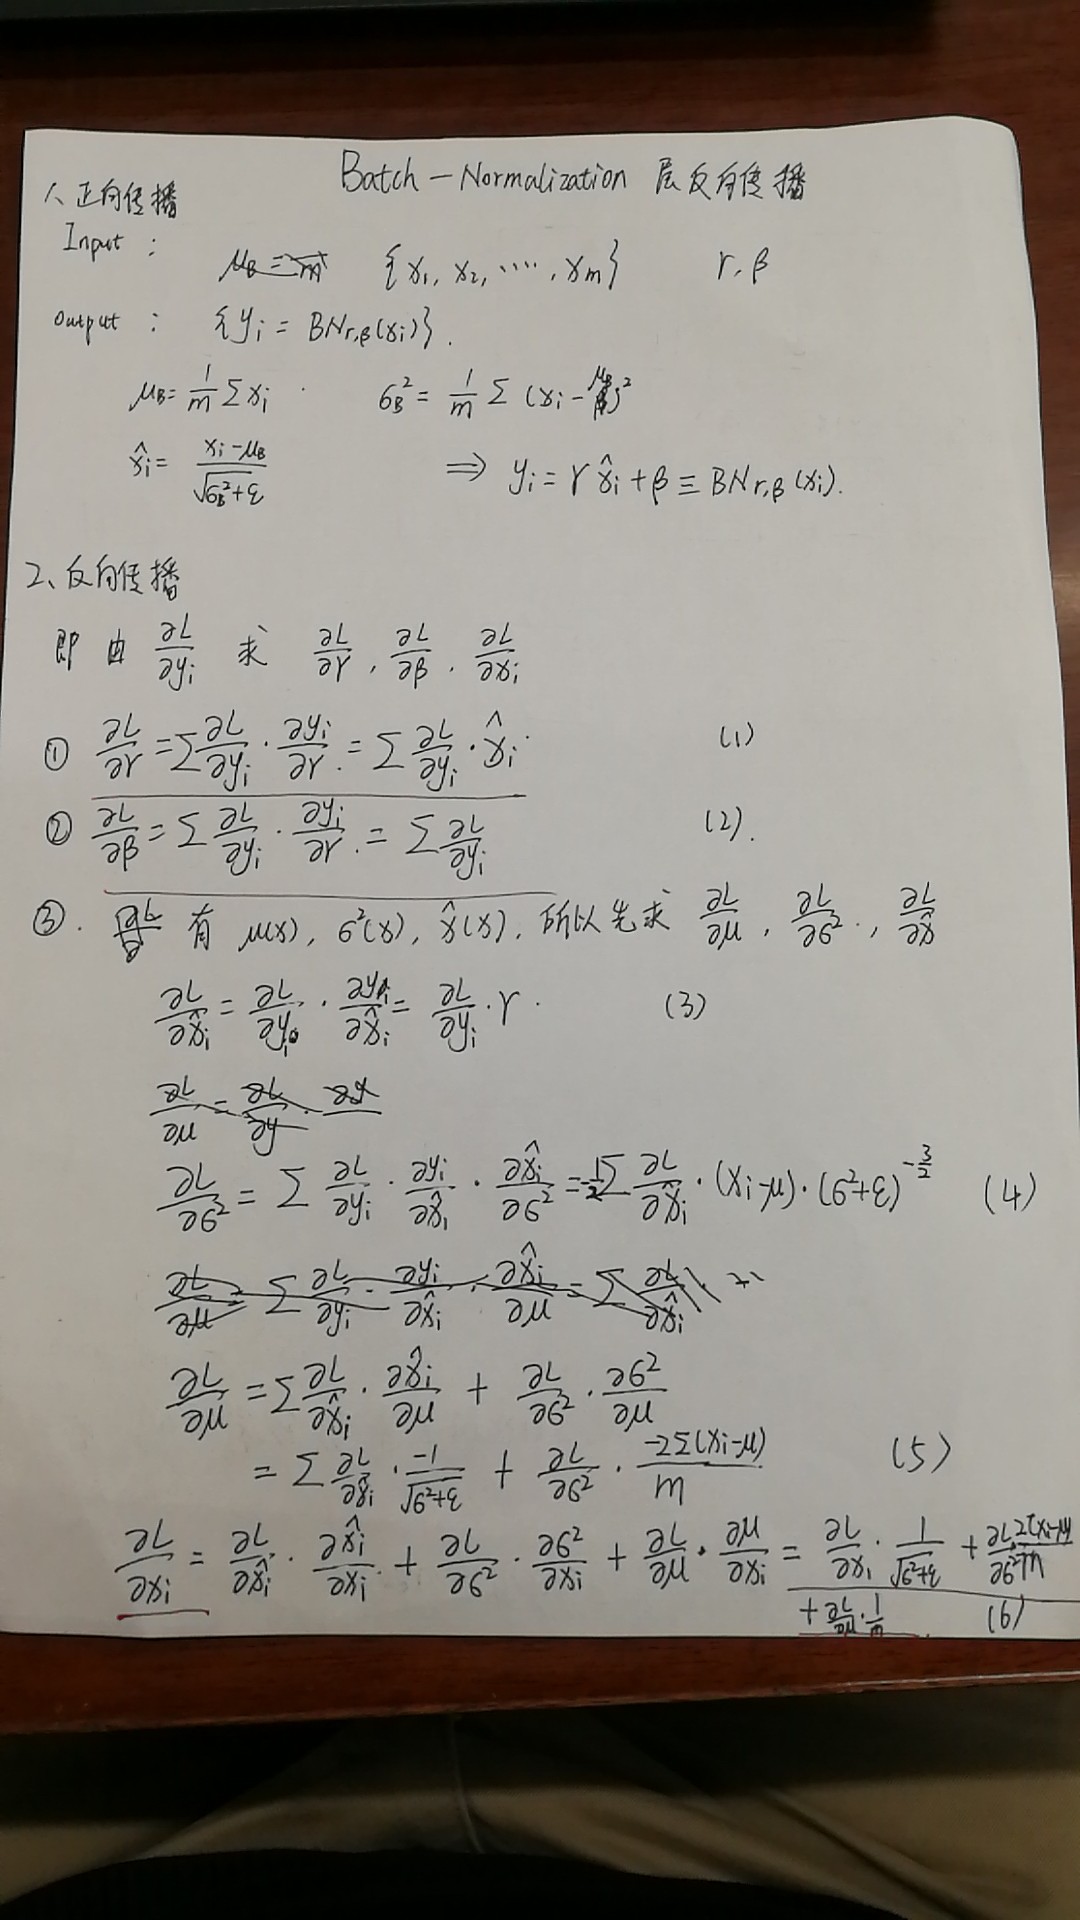 Batch-Normalization 层反向传播
1、正向传播
Input: {x₁, x₂, ····, xₘ} γ, β
Output: {yᵢ = BNγ,β(xᵢ)}.
μB = 1/m Σxᵢ · σB² = 1/m Σ (xᵢ - μB)²
x̂ᵢ = (xᵢ - μB)/√(σB²+ε) ⇒ yᵢ = γx̂ᵢ + β ≡ BNγ,β(xᵢ).
2、反向传播
即由 ∂L/∂yᵢ 求 ∂L/∂γ, ∂L/∂β, ∂L/∂xᵢ
① ∂L/∂γ = Σ ∂L/∂yᵢ · ∂yᵢ/∂γ = Σ ∂L/∂yᵢ · x̂ᵢ (1)
② ∂L/∂β = Σ ∂L/∂yᵢ · ∂yᵢ/∂γ = Σ ∂L/∂yᵢ (2).
③. 有 μ(x), σ²(x), x̂(x), 所以先求 ∂L/∂μ, ∂L/∂σ², ∂L/∂x̂
∂L/∂x̂ᵢ = ∂L/∂yᵢ · ∂yᵢ/∂x̂ᵢ = ∂L/∂yᵢ · γ. (3)
∂L/∂μ = ∂L/∂y · ∂y
∂L/∂σ² = Σ ∂L/∂yᵢ · ∂yᵢ/∂x̂ᵢ · ∂x̂ᵢ/∂σ² = -1/2 Σ ∂L/∂x̂ᵢ · (xᵢ-μ) · (σ²+ε)^(-3/2) (4)
∂L/∂μ = Σ ∂L/∂yᵢ · ∂yᵢ/∂x̂ᵢ · ∂x̂ᵢ/∂μ = Σ ∂L/∂x̂ᵢ
∂L/∂μ = Σ ∂L/∂x̂ᵢ · ∂x̂ᵢ/∂μ + ∂L/∂σ² · ∂σ²/∂μ
= Σ ∂L/∂x̂ᵢ · -1/√(σ²+ε) + ∂L/∂σ² · -2Σ(xᵢ-μ)/m (5)
∂L/∂xᵢ = ∂L/∂x̂ᵢ · ∂x̂ᵢ/∂xᵢ + ∂L/∂σ² · ∂σ²/∂xᵢ + ∂L/∂μ · ∂μ/∂xᵢ = ∂L/∂xᵢ · 1/√(σ²+ε) + ∂L/∂σ² · 2(xᵢ-μ)/m
+ ∂L/∂μ · 1/m (6)